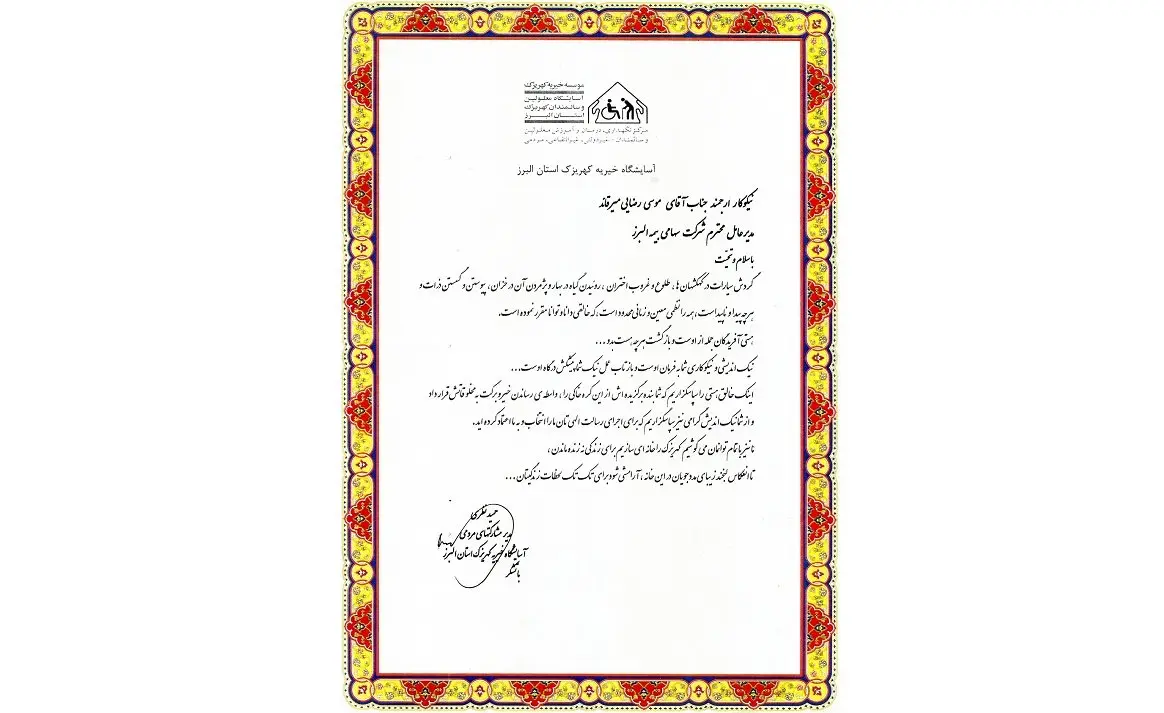 موسسه خیریه کهریزک
آسایشگاه معلولین
و سالمندان کهریزک
استان البرز
مرکز نگهداری، درمان و آموزش معلولین
و سالمندان - غیردولتی، غیرانتفاعی، مردمی
آسایشگاه خیریه کهریزک استان البرز
نیکوکار ارجمند جناب آقای موسی رضایی میرقائد
مدیرعامل محترم شرکت سهامی بیمه البرز
باسلام و تحیّت
گردش سیارات در کهکشهان ها، طلوع و غروب اختران، روئیدن گیاه در بهار و پژمردن آن در خزان، پیوستن و گسستن ذرات و
هرچه پیدا و ناپیداست، همه را نظمی معین و زمانی محدود است، که خالقی دانا و توانا مقرر نموده است.
هستی آفریدگان جمله از اوست و بازگشت هرچه هست بدو...
نیک اندیشی و نیکوکاری شما به فرمان اوست و بازتاب عمل نیک شما پیشکش درگاه اوست...
اینک خالق هستی را سپاسگزاریم که شما بنده برگزیده اش از این کره خاکی را، واسطه ی رساندن خیر و برکت به مخلوقاتش قرار داد
و از شما نیک اندیش گرامی نیز سپاسگزاریم که برای اجرای رسالت الهی تان ما را انتخاب و به ما اعتماد کرده اید.
ما نیز با تمام توانمان می کوشیم کهریزک را خانه ای سازیم برای زندگی نه زنده ماندن،
تا انعکاس لبخند زیبای مددجویان در این خانه، آرامشی شود برای تک تک لحظات زندگیتان...
مدیر مشارکتهای مردمی
آسایشگاه خیریه کهریزک استان البرز
با تشکر